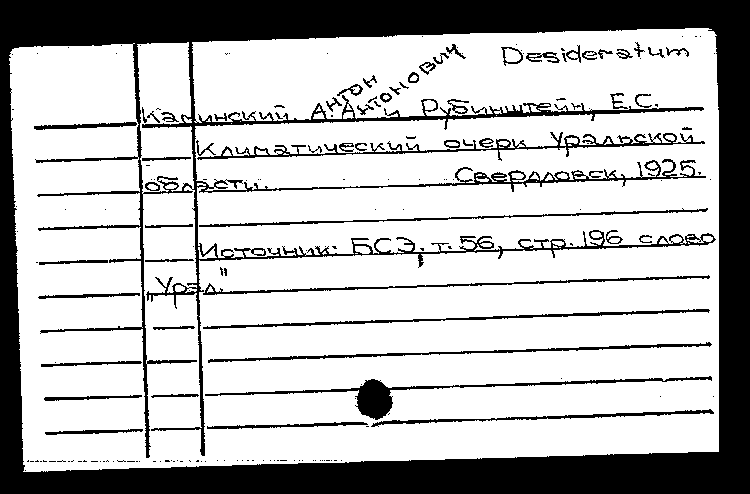 Desideratum
Антон Антонович
Каминский А. А. и Рубинштейн, Е.С.
Климатический очерк Уральской
области. Свердловск, 1925.
Источник: БСЭ, т. 56, стр. 196 слово
„Урал."